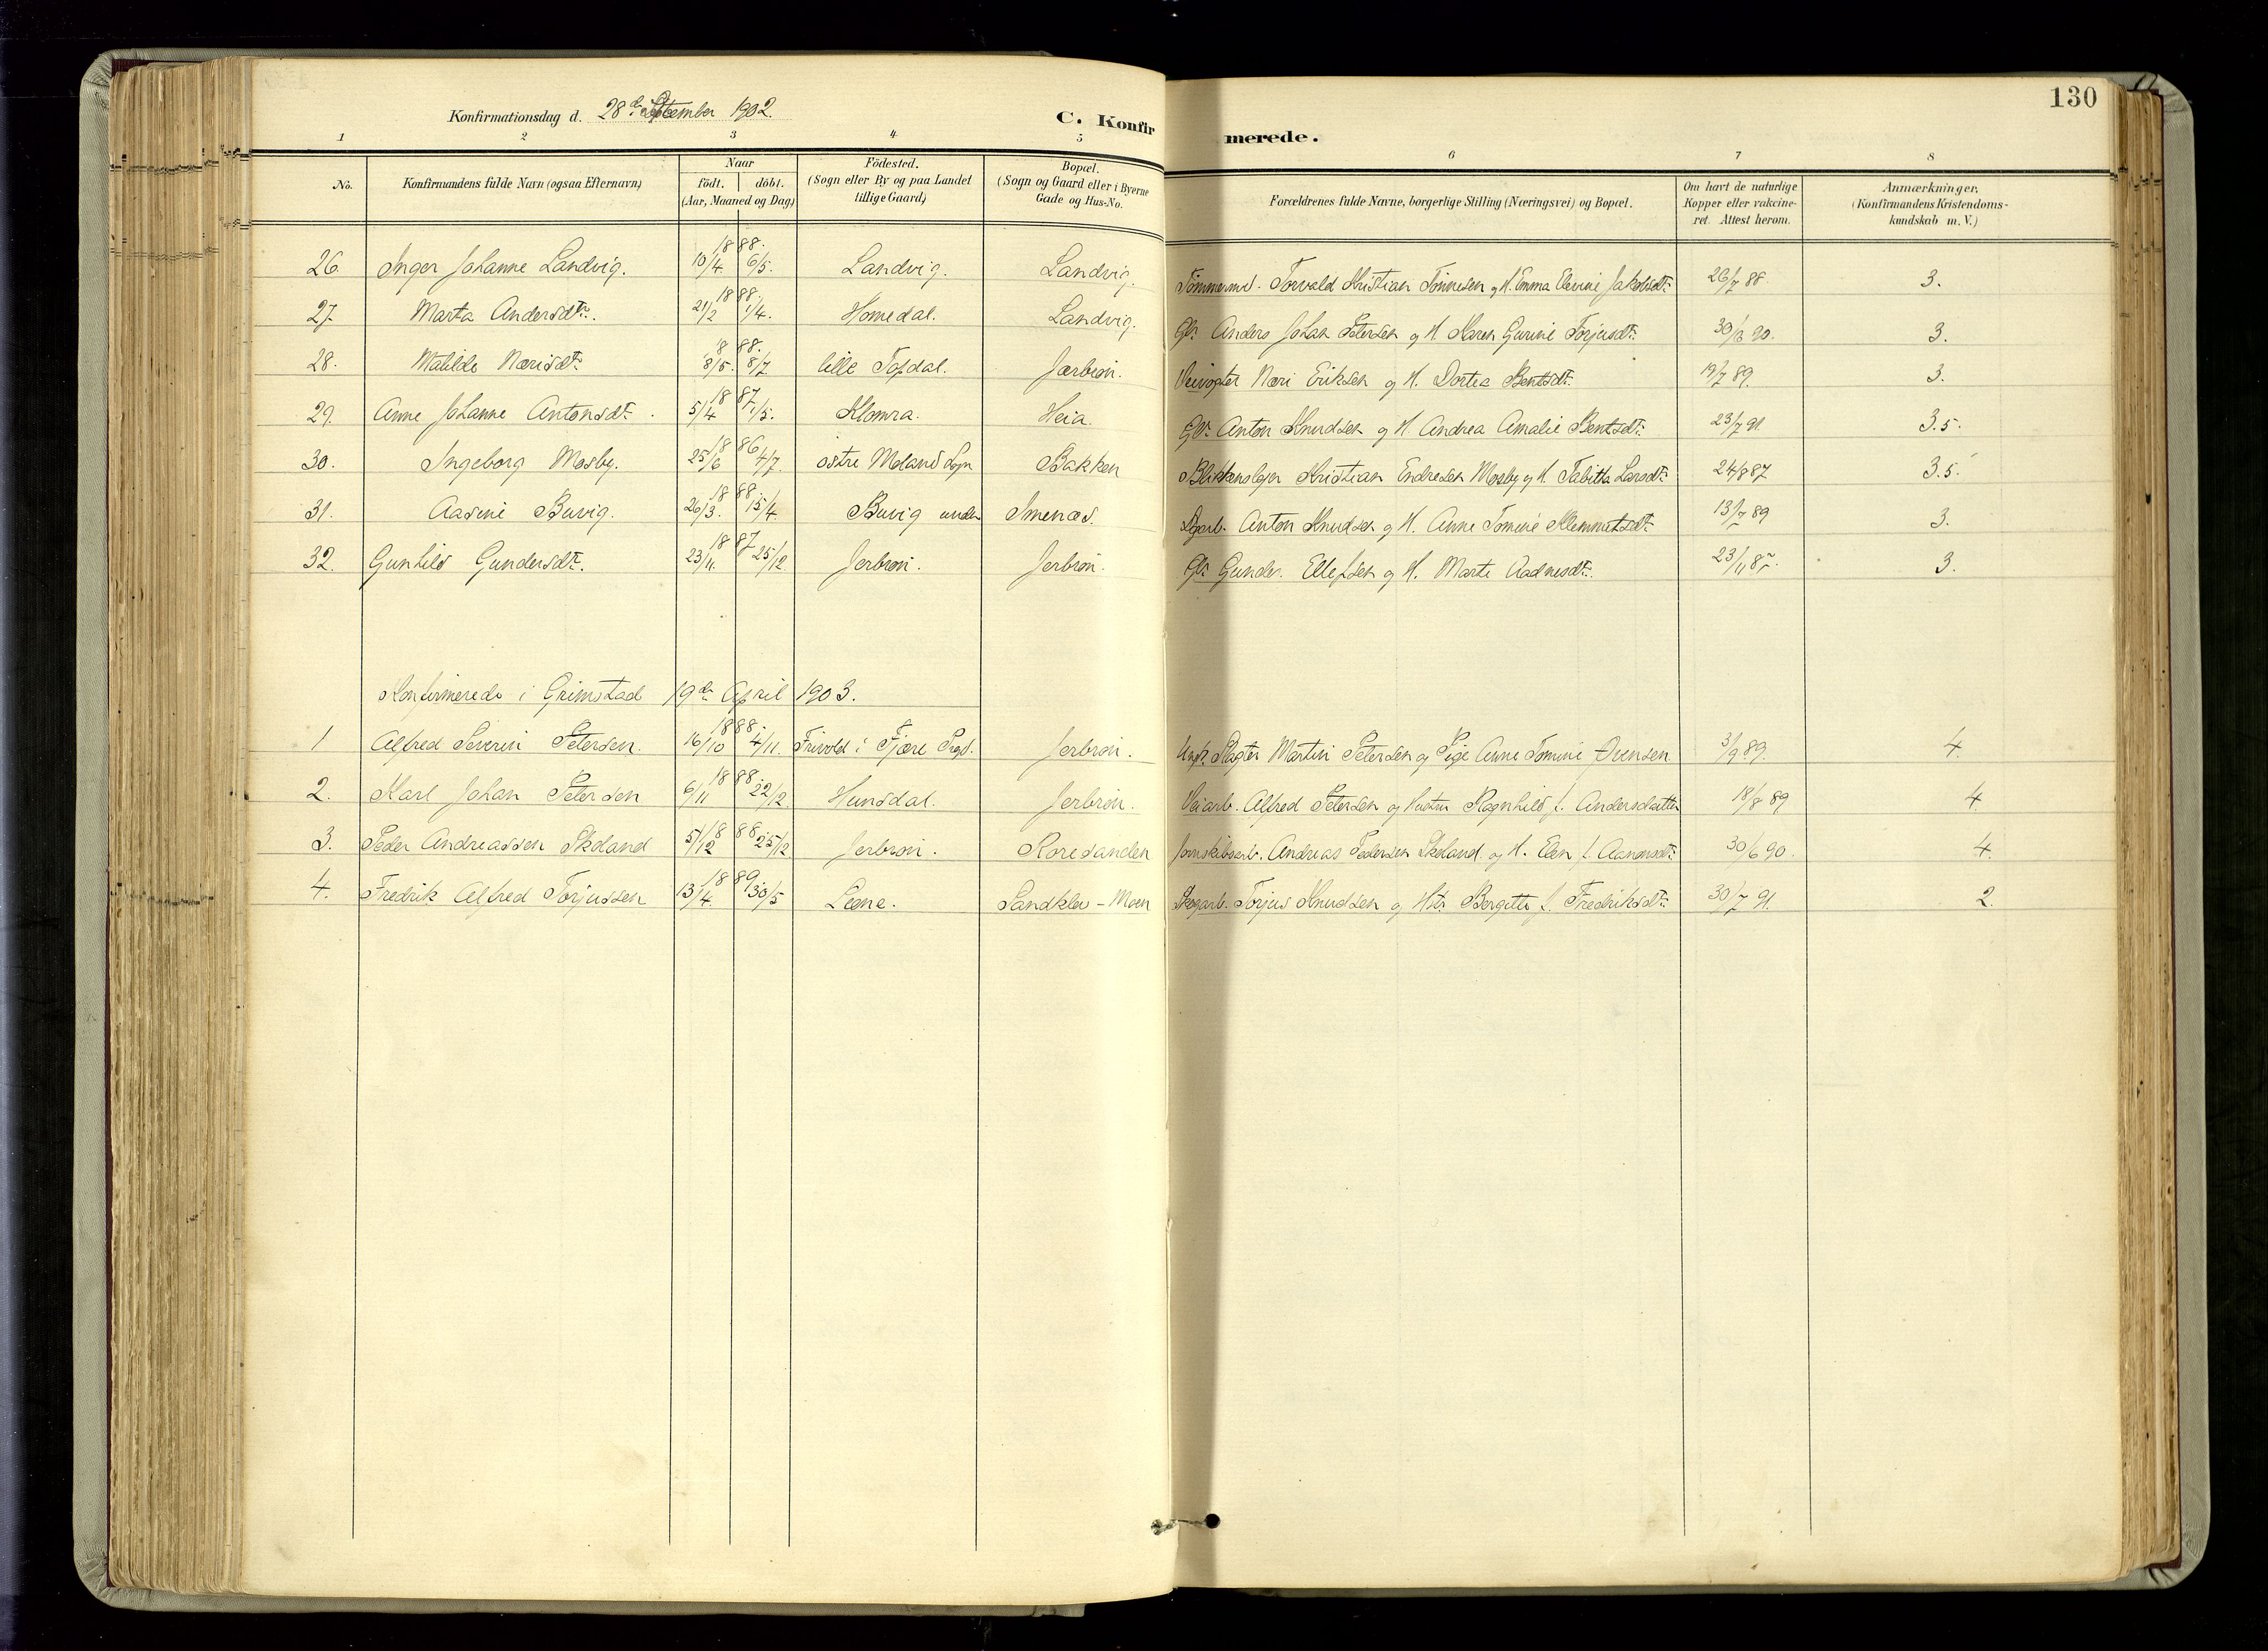 130
Konfirmationsdag d. 28de September 1902.
C. Konfirmerede.
1 2 3 4 5 6 7 8
No. Konfirmandens fulde Navn (ogsaa Efternavn) Naar födt. döbt. (Aar, Maaned og Dag) Födested. (Sogn eller By og paa Landet tillige Gaard) Bopæl. (Sogn og Gaard eller i Byerne Gade og Hus-No. Forældrenes fulde Navne, borgerlige Stilling (Næringsvei) og Bopæl. Om havt de naturlige Kopper eller vakcineret. Attest herom. Anmærkninger. (Konfirmandens Kristendomskundskab m. V.)
26. Inger Johanne Landvig. 1888. 10/4 6/5. Landvig. Landvig. Tømmermd. Torvald Kristian Tønnesen og H. Emma Elevine Jakobsdtr. 26/7 88. 3.
27. Marta Andersdtr. 1888. 21/2 1/4. Homedal. Landvig. Gbr. Anders Johan Petersen og H. Karen Gurine Torjusdtr. 90. 3.
28. Matilde Nærisdtr. 1888. 8/5. 8/7 lille Topdal. Jærbron. Veivogter Næri Eriksen og H. Dortea Bentsdtr. 19/7 89. 3.
29. Anne Johanne Antonsdtr. 1887. 5/4 1/5. Klomra. Heia. Gbr. Anton Knudsen og H. Andrea Amalie Bentsdtr. 23/7 91. 3.5.
30. Ingeborg Mosby. 1886 25/6 4/7. østre Moland Sogn Bakken Blikkenslgr Kristian Endresen Mosby og H. Tabitha Larsdtr. 24/8 87 3.5.
31. Aasine Buvig. 1888. 26/3. 15/4. Buvig under Smenæs. Anton Knudsen og H. Anne Tomine Klemmetsdtr. 13/7 89 3.
32. Gunhild Gundersdtr. 1887 23/11. 25/12. Jerbron. Jerbron. Gbr Gunder Ellefsen og H. Marte Aadnesdtr. 23/11 3.
Konfirmerede i Grimstad 19de April 1903.
1 Alfred Severin Petersen. 1888. 16/10 4/11. Frivold i Fjære Jerbron. Ungk. Slagter Martin Petersen og Pige Anne Tomine Ørensen 3/9 89. 4.
2. Karl Johan Petersen 1888. 6/11 22/12. Hunsdal. Jerbron. Veiarb. Alfred Petersen og Hustru Ragnhild f. Andersdatter 18/8 89 4.
3. Peder Andreassen Skoland 1888. 5/12 25/12 Jerbron. Roresanden Jernskibsarb. Andreas Pedersen Skoland og H. Elen f. Aanonsdtr. 30/6 90. 4.
4. Fredrik Alfred Torjussen 1889. 13/4. 30/5 Leene. Sandklev - Moen Skogarb. Torjus Knudsen og Hst. Bergitte f. Fredriksdtr. 30/7 91. 2.